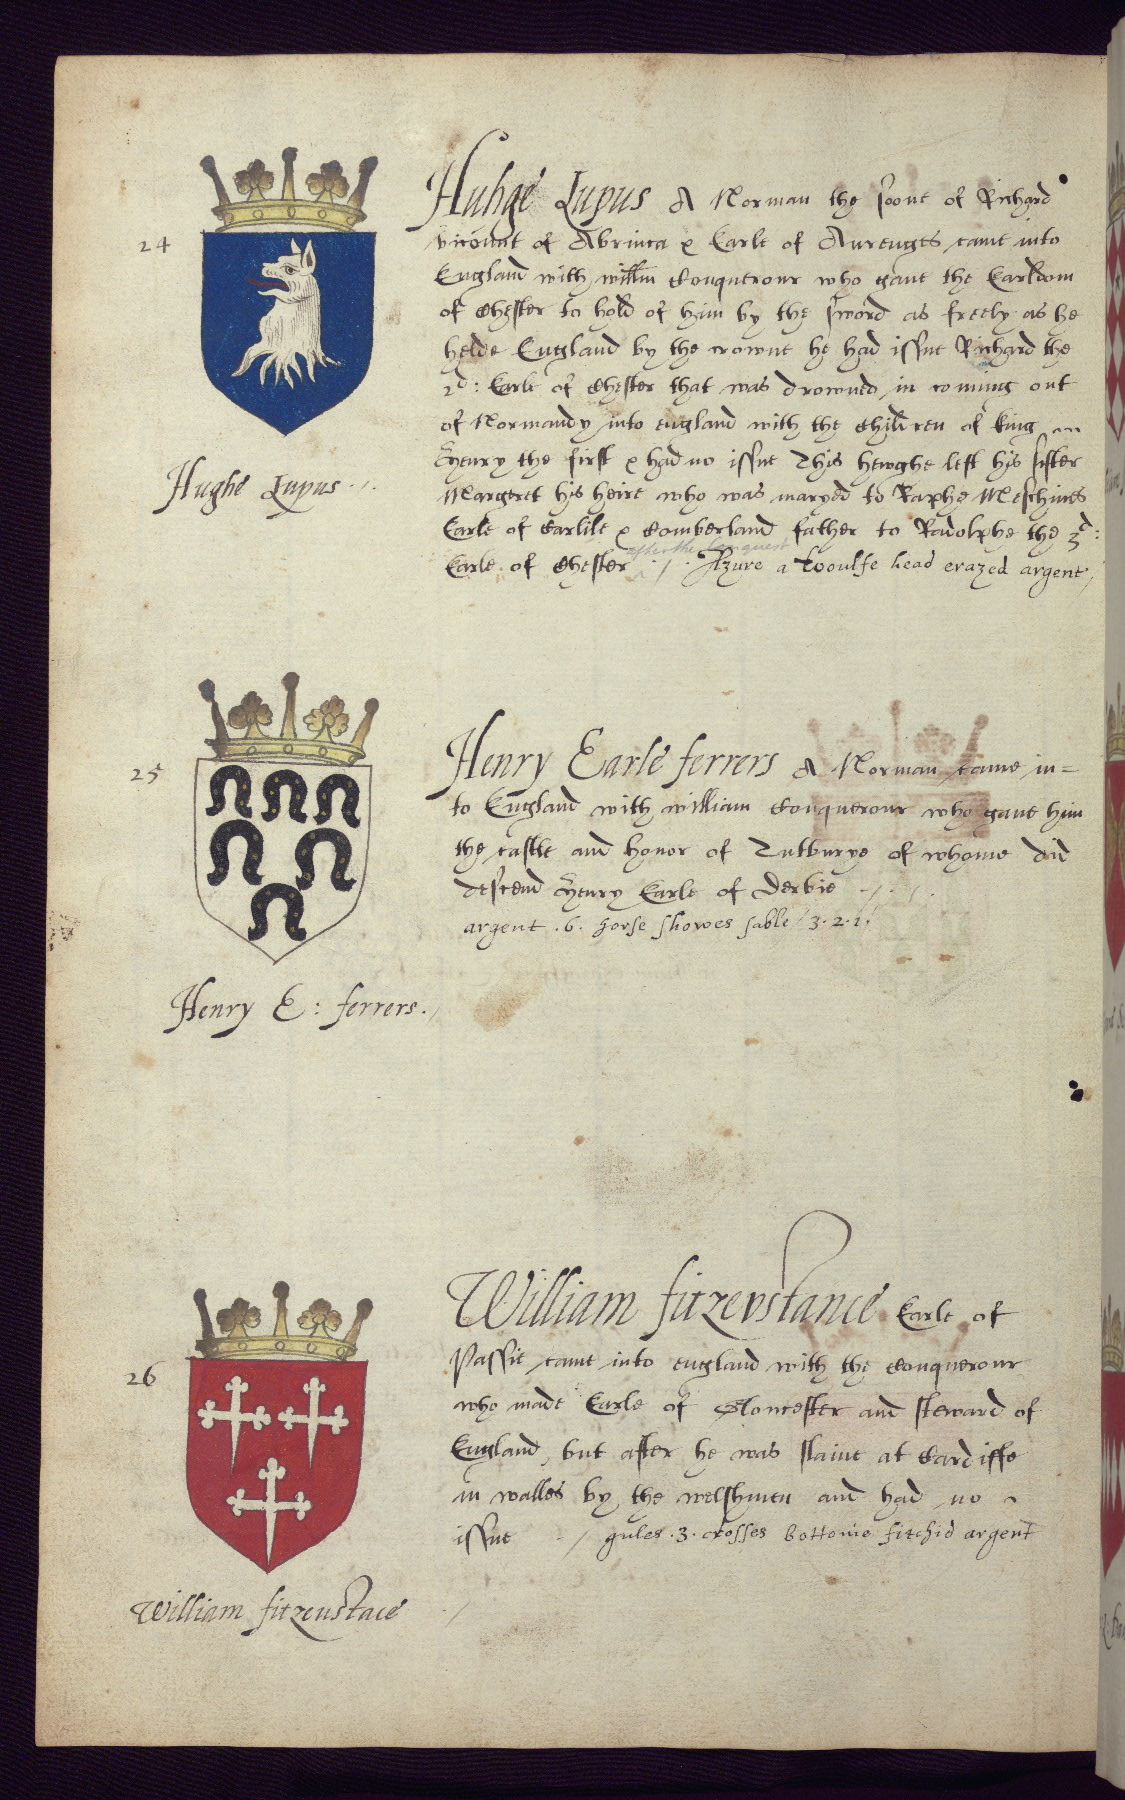 24
Huhge Lupus A Norman the soone of Richard
vicount of Abrinca & Earle of Aurenges came into
England with willm Conquerour who gave the Earldom
of Chester to hold of him by the sword as freely as he
helde England by the crowne he had issue Richard the
2d: Earle of Chester that was drowned in coming out
of Normandy into england with the Children of king
Henry the first & had no issue This hewghe left his sister
Margeret his heire who was maryed to Raphe Meschines
Earle of Carlile & Comberland father to Radolphe the 3d:
after the Conquest
Earle of Chester ·/· Azure a Woulfe head erazed argent /
Hughe Lupus ·/·
25
Henry Earle ferrers A Norman came in=
to England with william Conquerour who gave him
the castle and honor of Tutburye of whome did
descend Henry Earle of Derbie ·/·/·
argent .6. horse showes sable / 3.2.1.
Henry E: ferrers ./
26
William fitzevstance Earle of
Passie came into england with the Conquerour
who made Earle of Gloncester and steward of
England, but after he was slaine at Cardiffe
in walles by the welshmen and had no
issue / gules .3. crosses bottonie fitchid argent
William fitzeustace /